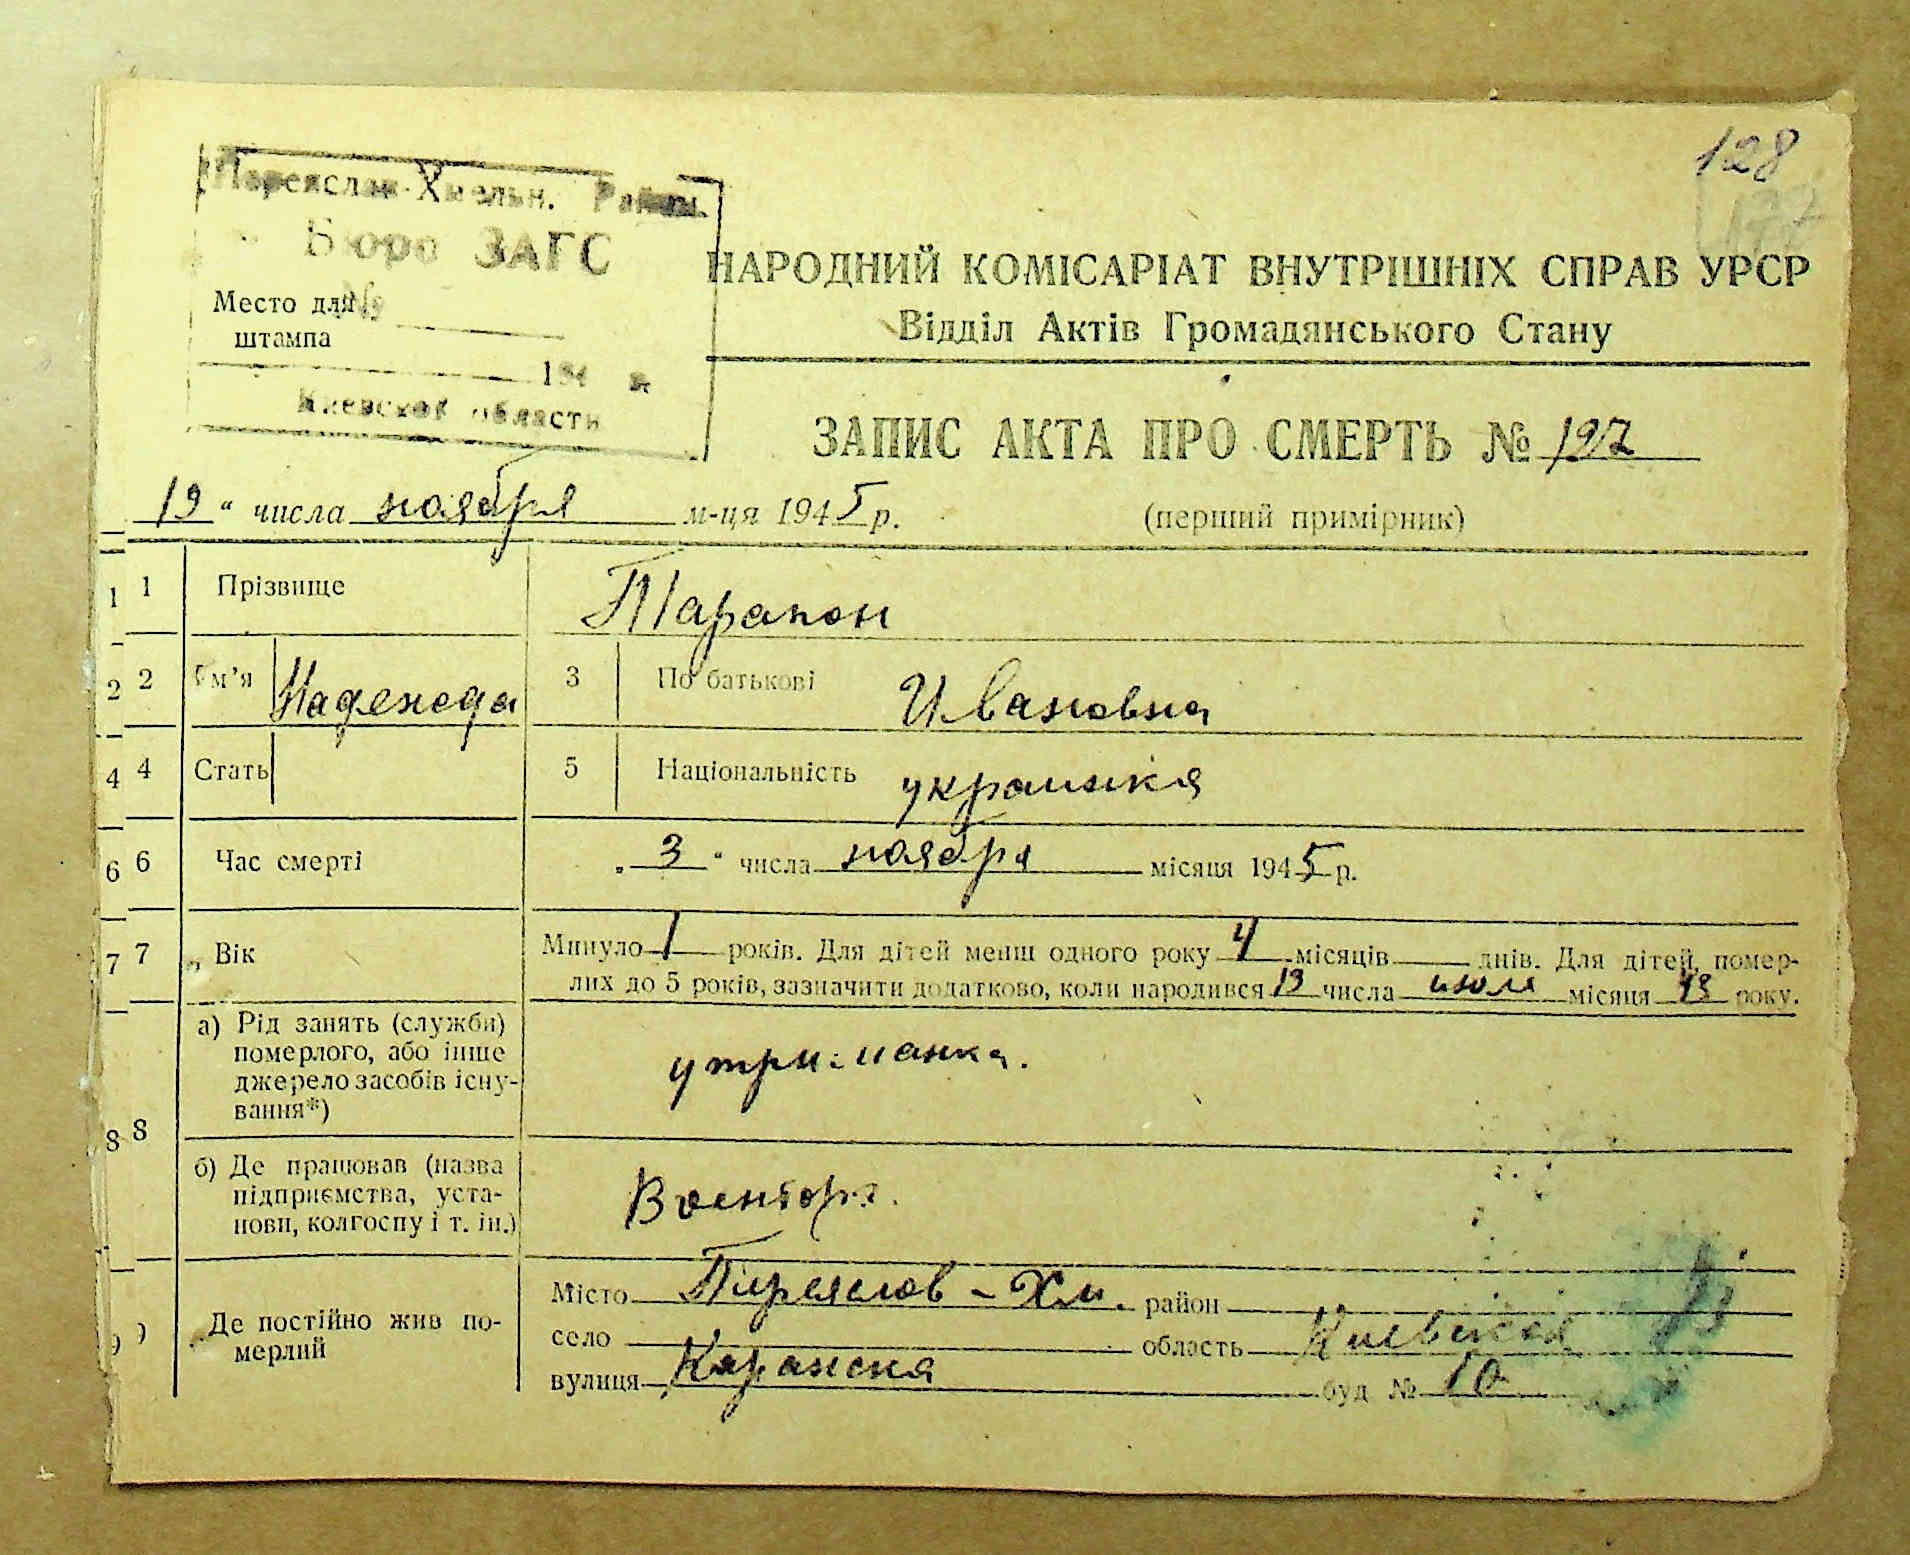 128
Переяслав-Хмельн. Район.
Бюро ЗАГС
Место для №
штампа
194 г.
Киевской области
НАРОДНИЙ КОМІСАРІАТ ВНУТРІШНІХ СПРАВ УРСР
Відділ Актів Громадянського Стану
ЗАПИС АКТА ПРО СМЕРТЬ № 197
19 " числа ноября м-ця 1945 р.
(перший примірник)
1 1 Прізвище Тарапон
2 2 Ім'я Надежда 3 По батькові Ивановна
4 4 Стать 5 Національність украинка
6 6 Час смерті „ 3 " числа ноября місяця 1945 р.
7 7 Вік Минуло 1 років. Для дітей менш одного року 4 місяців днів. Для дітей, помер-
лих до 5 років, зазначити додатково, коли народився 13 числа июля місяця року.
8 8 а) Рід занять (служби)
померлого, або інше
джерело засобів існу-
вання*)
утриманка.
б) Де працював (назва
підприємства, уста-
нови, колгоспу і т. ін.)
Военторг.
9 9 Де постійно жив по-
мерлий
Місто Переяслов - Хм. район
село область Киевская
вулиця Каранска буд № 10